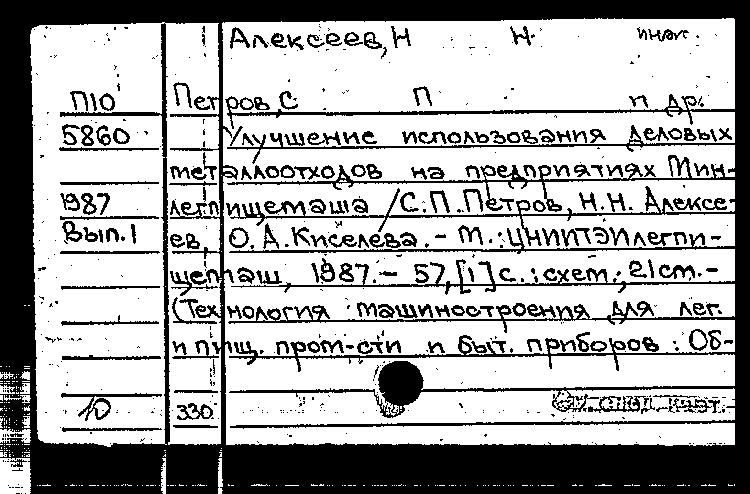 Алексеев, Н Н
П10 Петров, С П и др.
5860 Улучшение использования деловых
металлоотходов на предприятиях Мин-
1987 легпищемаша / С.П.Петров, Н.Н. Алексе-
Вып.1 ев, О.А.Киселева. - М.:ЦНИИТЭИлегпи-
щемаш, 1987. - 57,[1]с.:схем.;21см.-
(Технология машиностроения для лег.
и пищ. пром-сти и быт. приборов : Об-
10 330 след. карт.